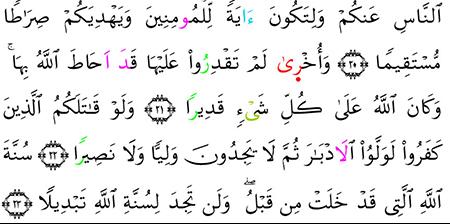 النَّاسِ عَنكُمْ وَلِتَكُونَ ءَايَةً لِّلْمُومِنِينَ وَيَهْدِيَكُمْ صِرَٰطًا
مُّسْتَقِيمًا ۝٢٠ وَأُخْر۪يٰ لَمْ تَقْدِرُواْ عَلَيْهَا قَدَ اَحَاطَ اَللَّهُ بِهَاۚ
وَكَانَ اَللَّهُ عَلَىٰ كُلِّ شَيْءٍ قَدِيرًا ۝٢١ وَلَوْ قَٰتَلَكُمُ اُلَّذِينَ
كَفَرُواْ لَوَلَّوُاْ اُلَادْبَٰرَ ثُمَّ لَا يَجِدُونَ وَلِيًّا وَلَا نَصِيرًا ۝٢٢ سُنَّةَ
اَللَّهِ اِلَّتِي قَدْ خَلَتْ مِن قَبْلُۖ وَلَن تَجِدَ لِسُنَّةِ اِللَّهِ تَبْدِيلًا ۝٢٣